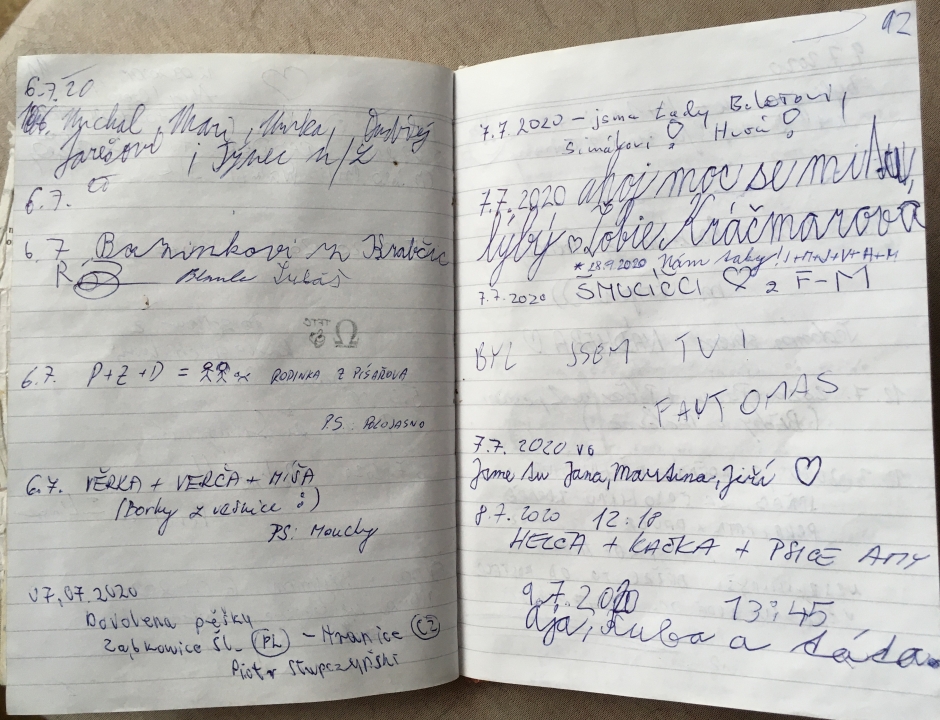 6.7.20
Michal, Mari, Mirka, Ondřej
Jarešovi i Týnec n/L
6.7.
6.7 Bažinkovi z Krabčic
Blanka Luboš
6.7. P+Z+D = RODINKA Z PÍSAŘOVA
PS: POLOJASNO
6.7. VĚRKA + VERČA + MÍŠA
(Borky z vesnice :)
PS: Mouchy
07.07.2020
Dovolena pěšky
Ząbkowice Śl. (PL) – Hranice (CZ)
Piotr Słupczyński
92
7.7.2020 – jsme tady
Simákovi!
7.7.2020 ahoj moc se mi tu
lýbý ♡ Tobie Kráčmarová
* 28.9.2020 Nám taky! I+M+J+V+A+M
7.7.2020 SMUCIČCI ♡ z F-M
BYL JSEM TU!
FANTOMAS
7.7.2020
Jsme tu Jana, Martina, Jiří ♡
8.7.2020 12:18
HELČA + KAČKA + PSICE AMY
9.7.2020 13:45
Ája, Kuba a táta